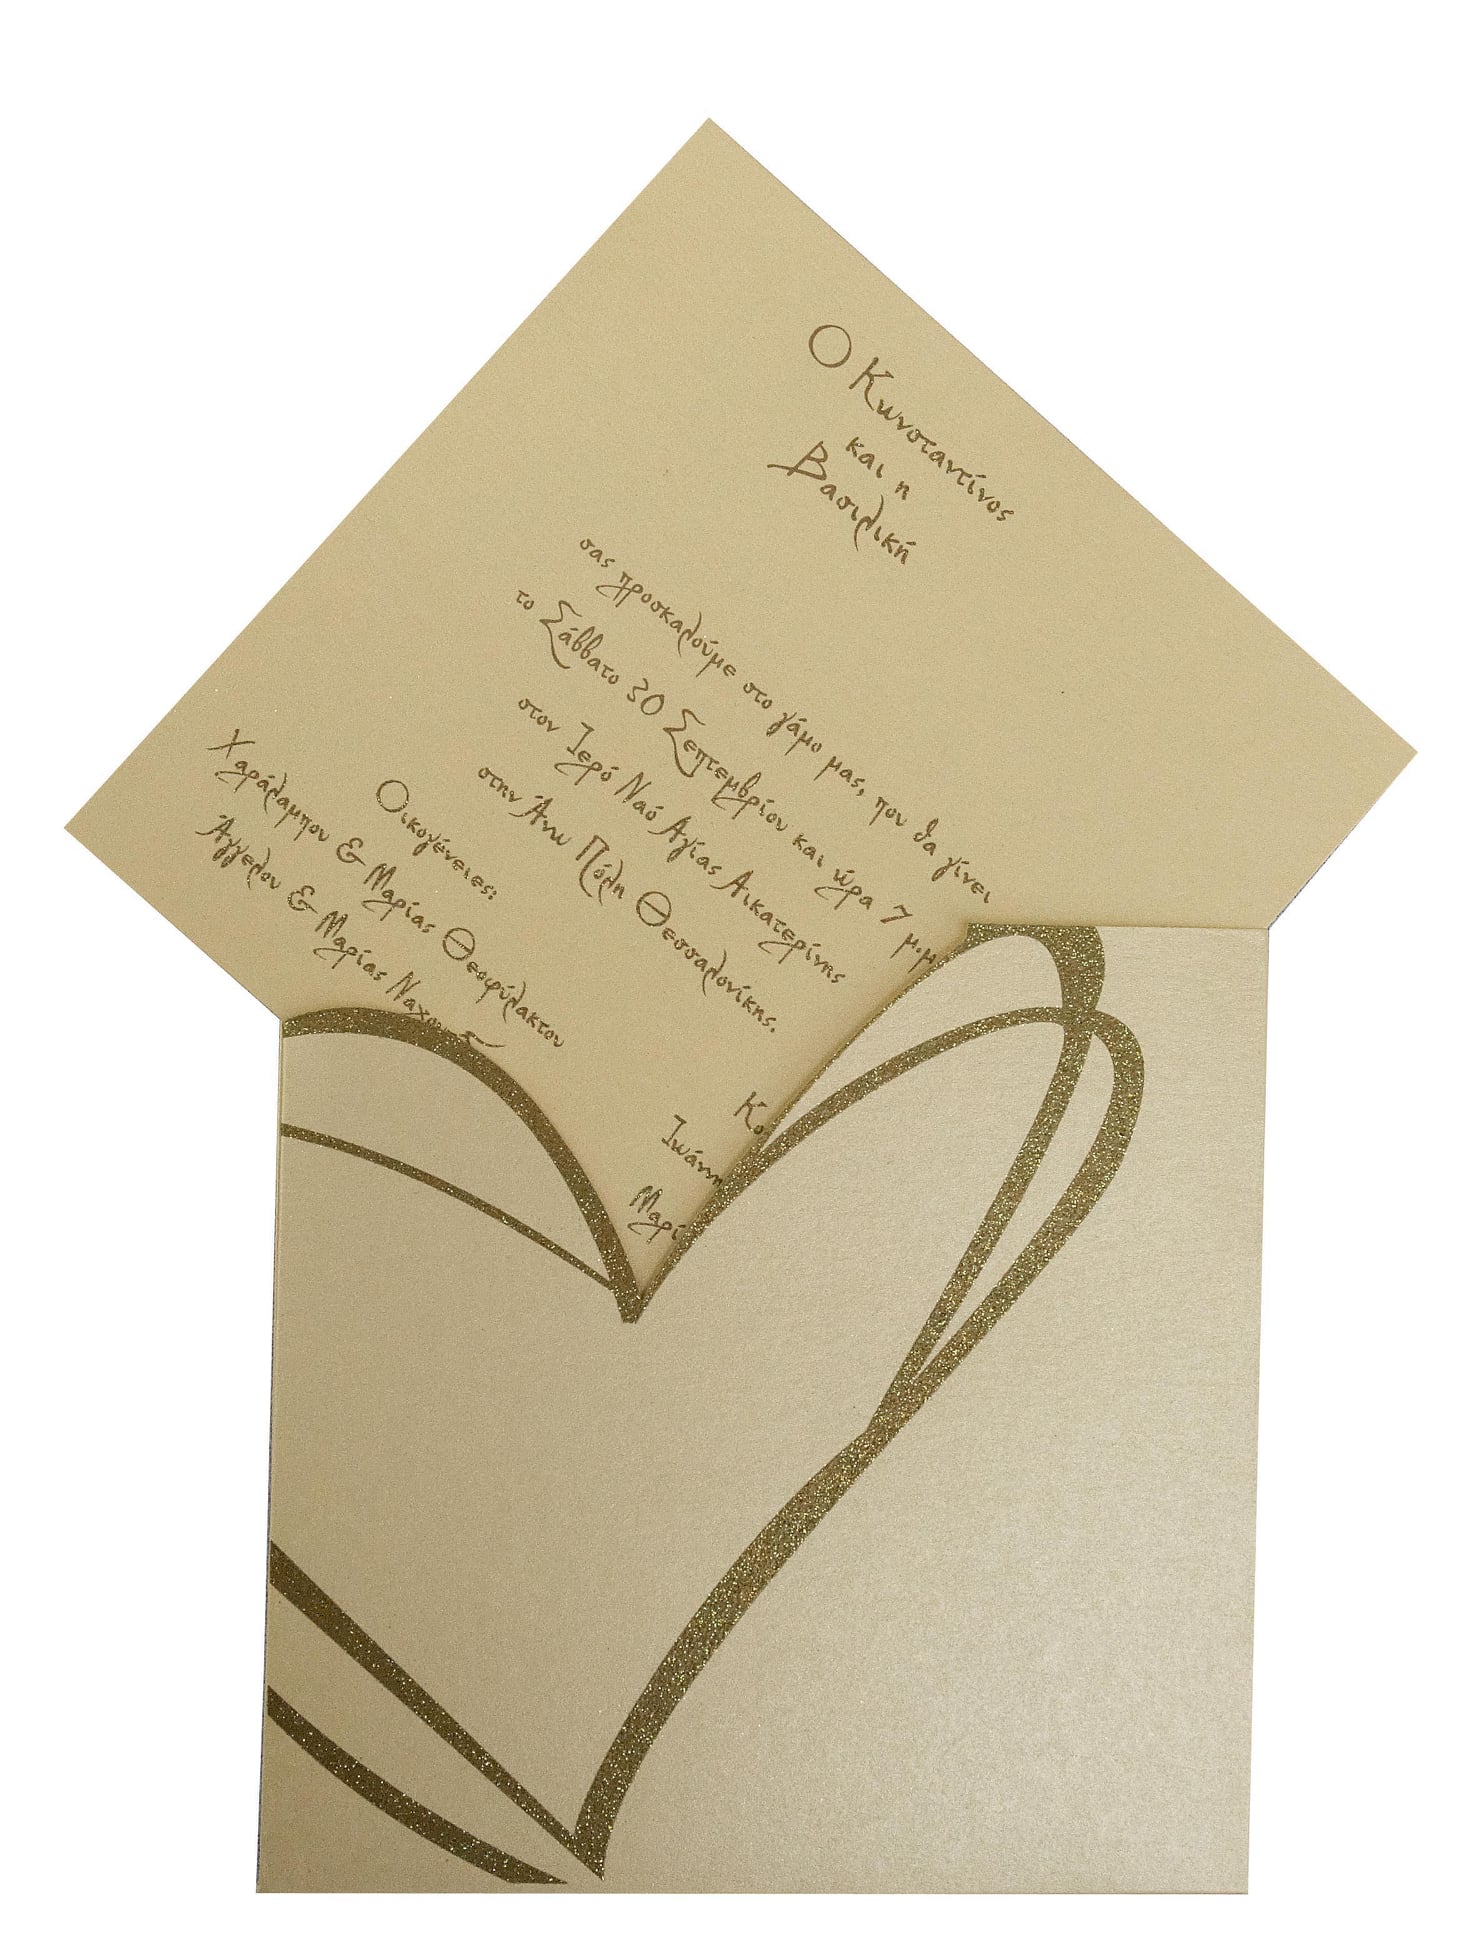 Ο Κωνσταντίνος
και η
Βασιλική
σας προσκαλούμε στο γάμο μας, που θα γίνει
το Σάββατο 30 Σεπτεμβρίου και ώρα 7 μ.μ.
στον Ιερό Ναό Αγίας Αικατερίνης
στην Άνω Πόλη Θεσσαλονίκης.
Οικογένειες:
Χαράλαμπου & Μαρίας Θεοφύλακτου
Άγγελου & Μαρίας